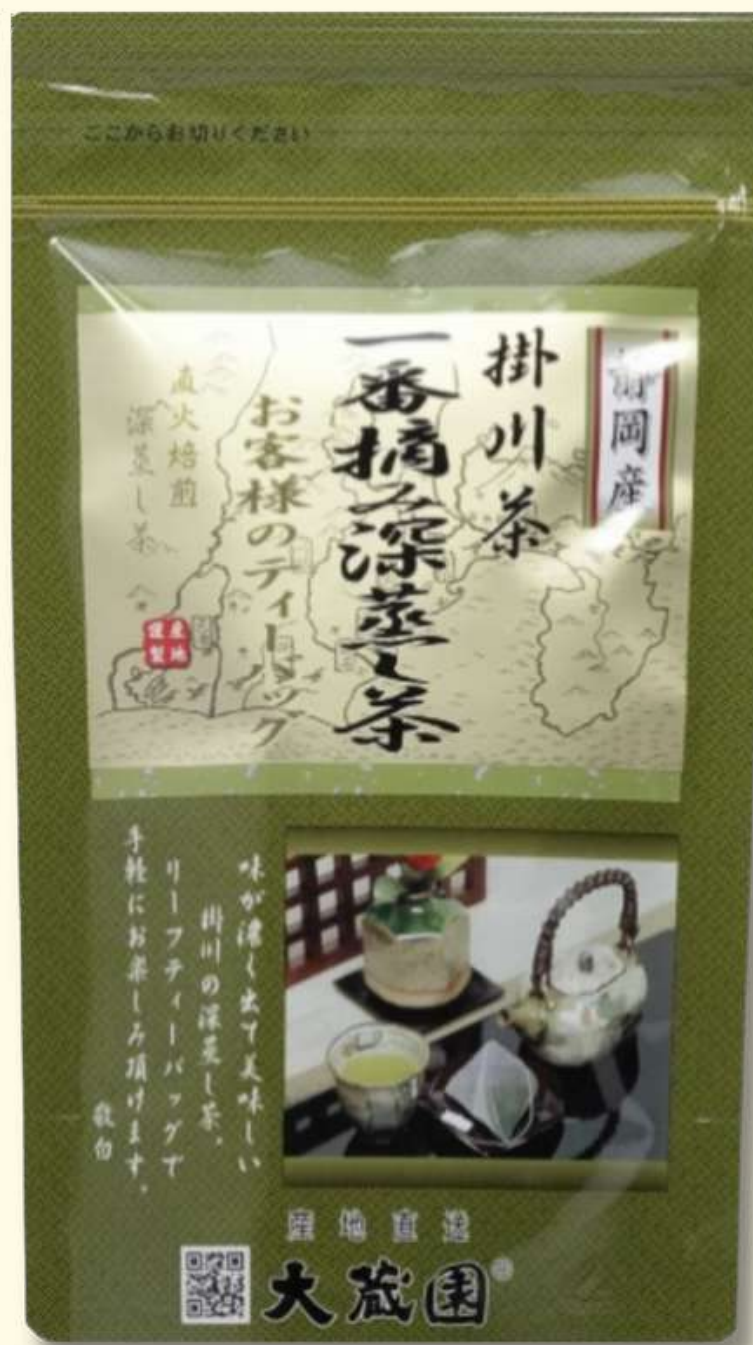 ここからお切りください
静岡産
掛川茶
一番摘み深蒸し茶
お客様のティーバッグ
直火焙煎
深蒸し茶
産地
謹製
味が濃く出て美味しい
掛川の深蒸し茶、
リーフティーバッグで
手軽にお楽しみ頂けます。
敬白
産地直送
大蔵園®